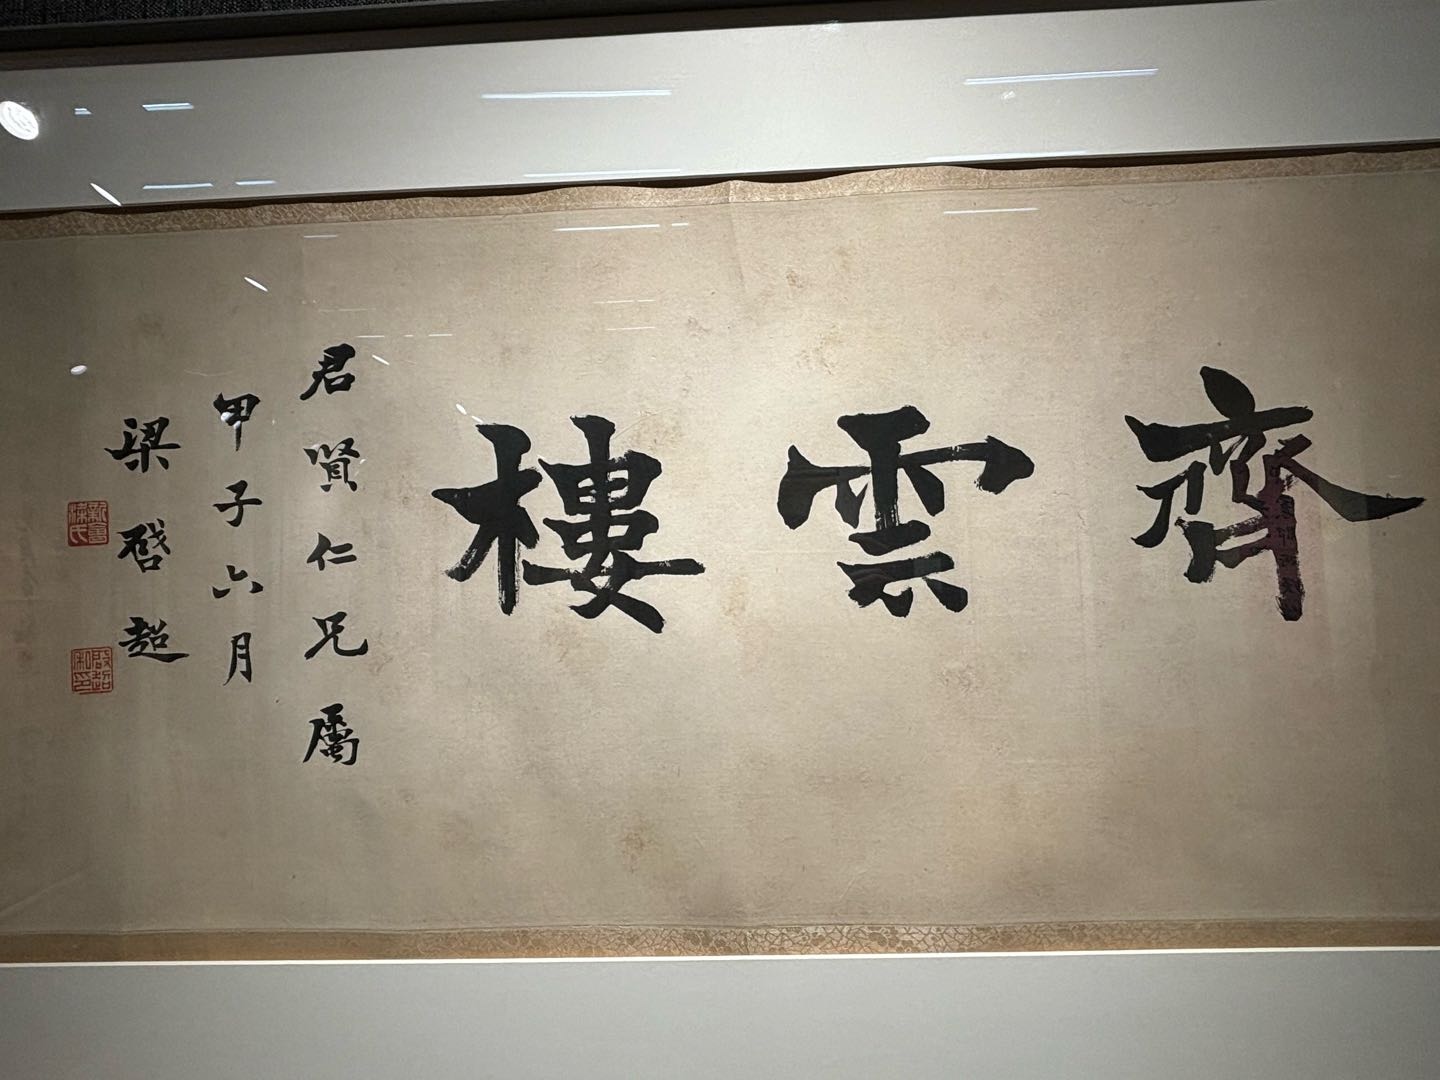 齊雲樓
君賢仁兄屬
甲子六月
梁啓超
新會梁氏
啟超私印